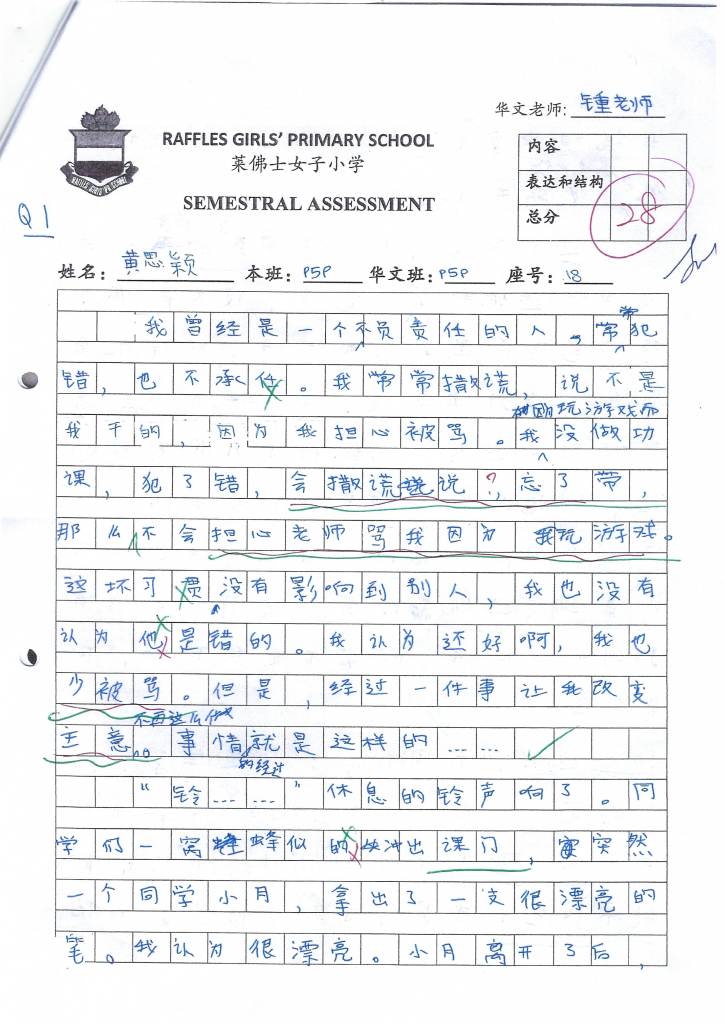 华文老师: 锺老师
RAFFLES GIRLS' PRIMARY SCHOOL
莱佛士女子小学
SEMESTRAL ASSESSMENT
内容
表达和结构
总分
28
Q1
姓名: 黄思颖 本班: P5P 华文班: P5P 座号: 18
我曾经是一个不负责任的人,常常犯
错,也不承任。我常常撒谎,说不是
我干的,因为我担心被骂。我因玩游戏而没做功
课,犯了错,会撒谎说?,忘了带,
那么不会担心老师骂我因为我玩游戏。
这坏习惯没有影响到别人,我也没有
认为他是错的。我认为还好啊,我也
少被骂。但是,经过一件事让我改变
主意不再这么做。事情的经过就是这样的……
“铃……”休息的铃声响了。同
学们一窝蜂似的快冲出课门,突然
一个同学小月,拿出了一支很漂亮的
笔。我认为很漂亮。小月离开了后,